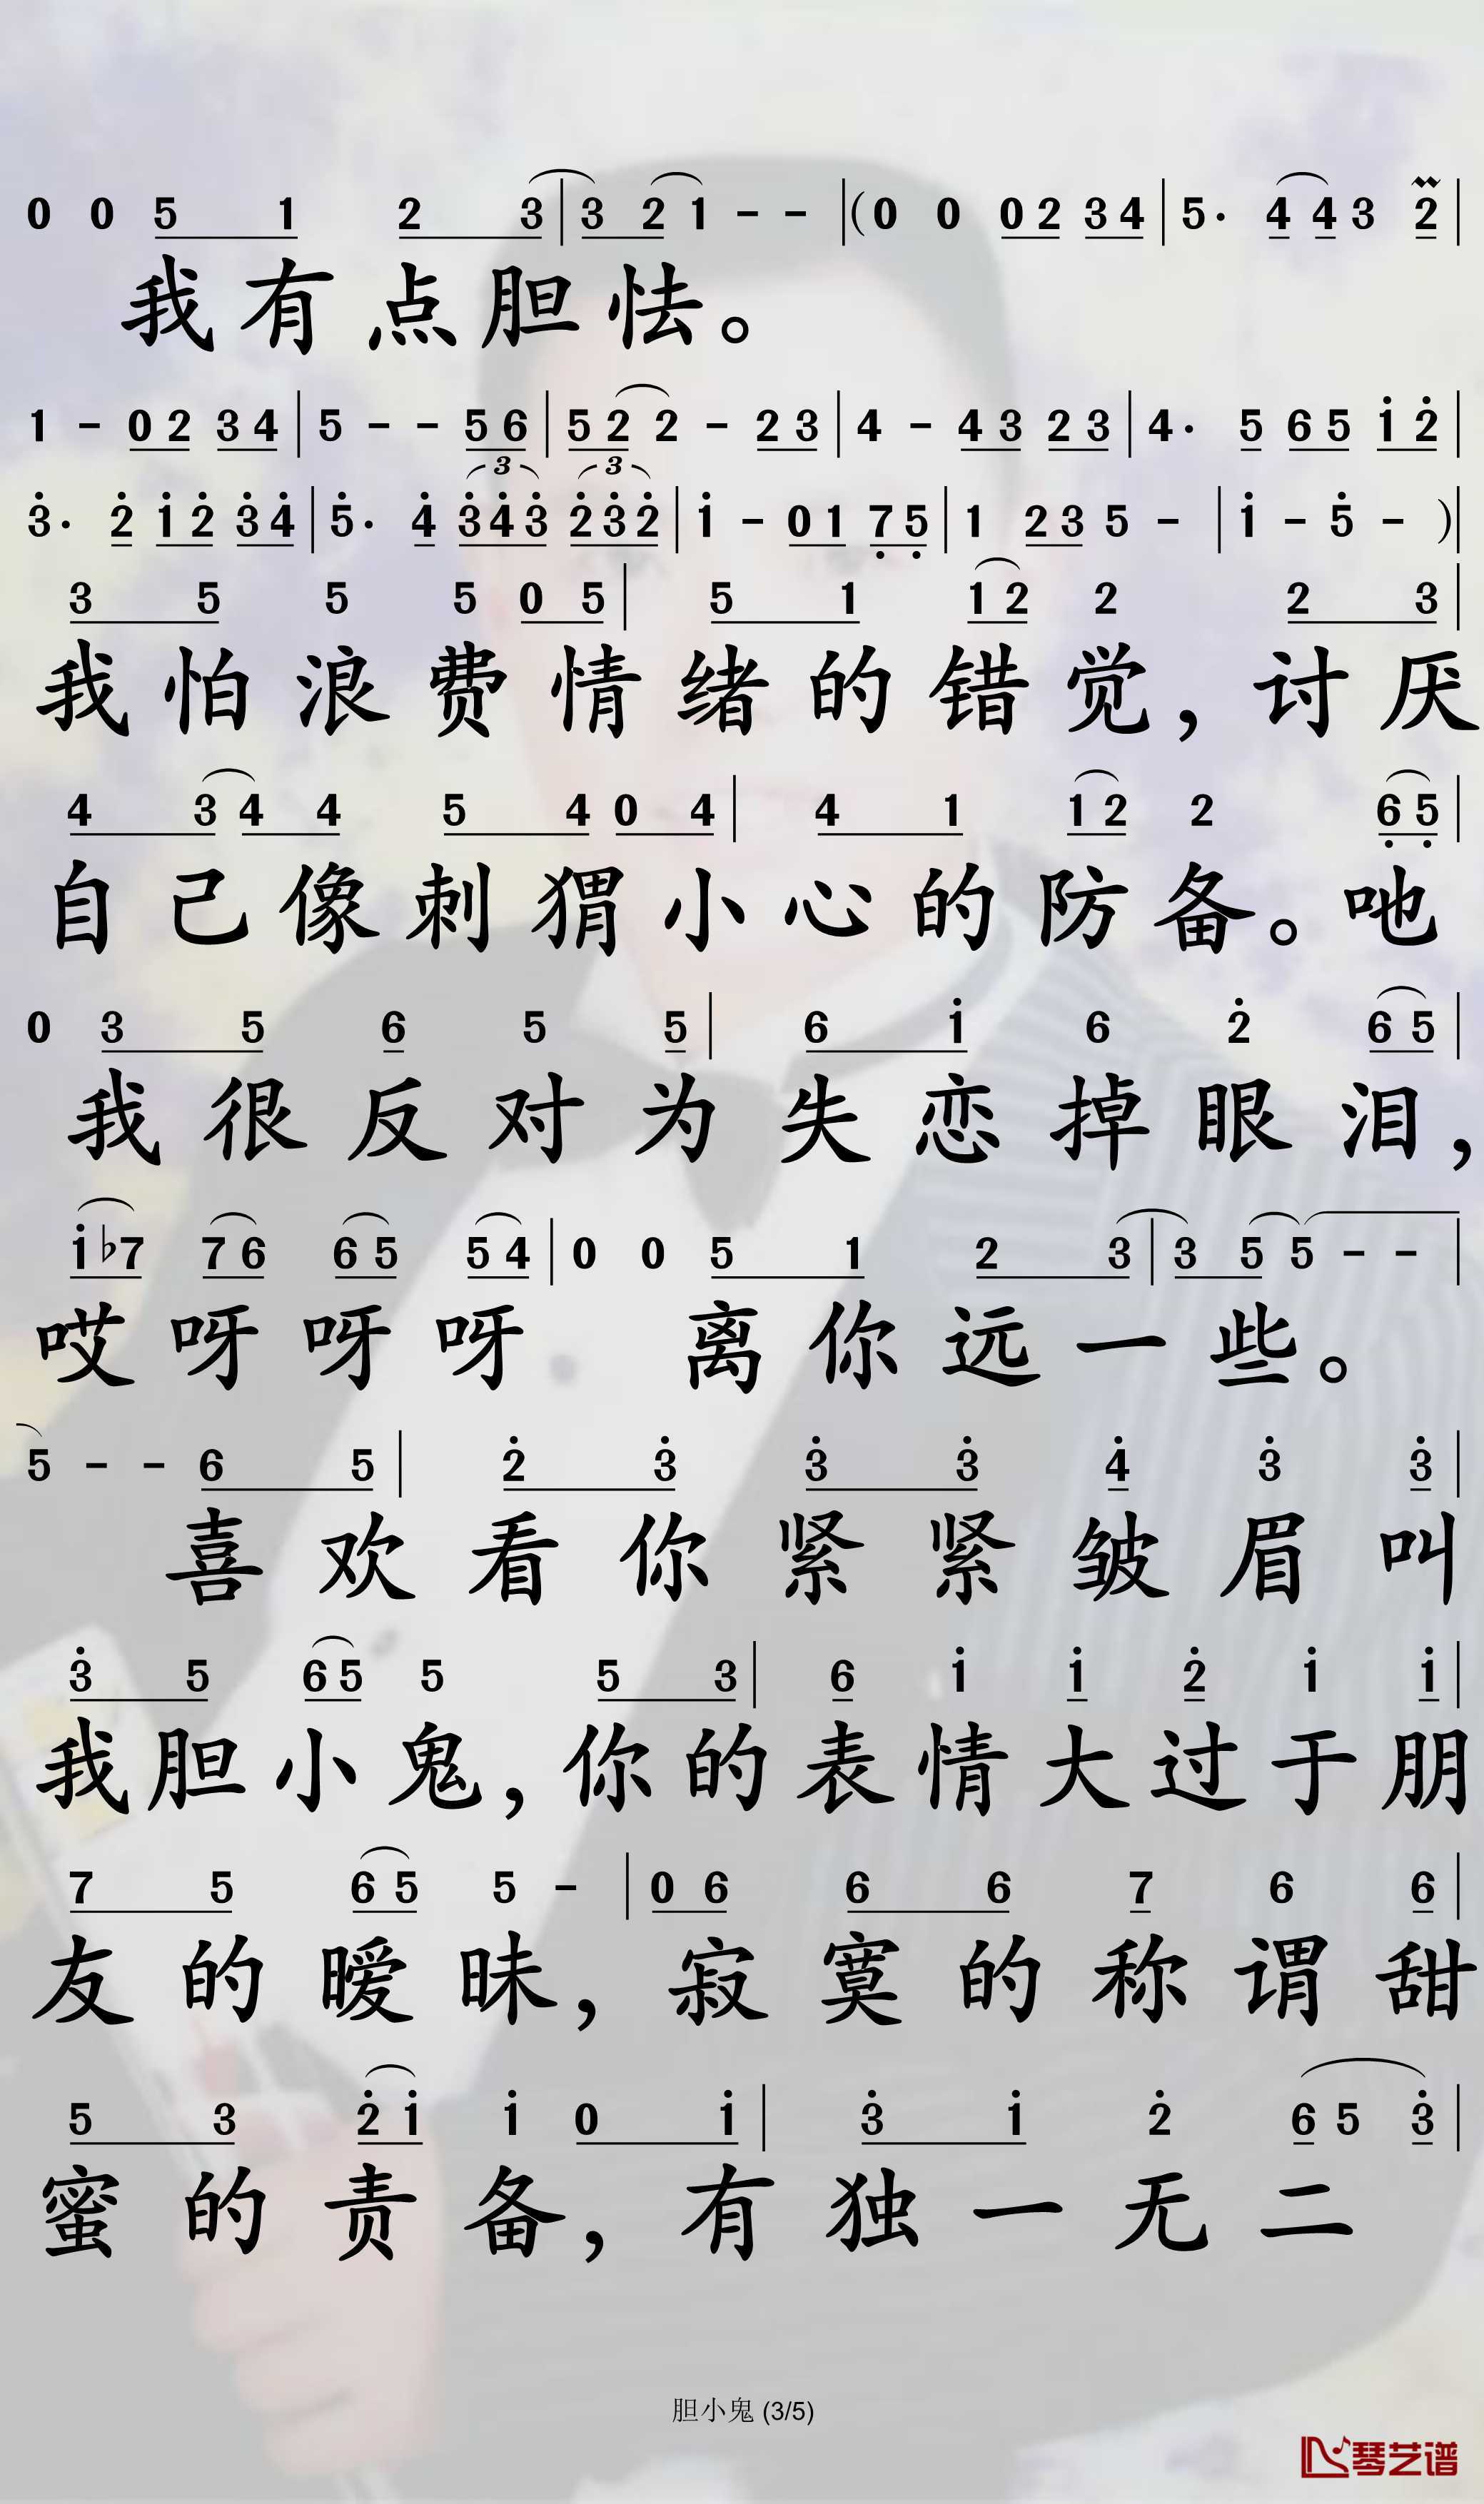 0 0 5 1 2 3 | 3 2 1 - - | ( 0 0 0 2 3 4 | 5 · 4 4 3 2 |
我有点胆怯。
1 - 0 2 3 4 | 5 - - 5 6 | 5 2 2 - 2 3 | 4 - 4 3 2 3 | 4 · 5 6 5 1 2 |
3 3
3 · 2 1 2 3 4 | 5 · 4 3 4 3 2 3 2 | 1 - 0 1 7 5 | 1 2 3 5 - | 1 - 5 - ) |
3 5 5 5 0 5 | 5 1 1 2 2 2 3 |
我怕浪费情绪的错觉,讨厌
4 3 4 4 5 4 0 4 | 4 1 1 2 2 6 5 |
自己像刺猬小心的防备。吔
0 3 5 6 5 5 | 6 1 6 2 6 5 |
我很反对为失恋掉眼泪,
1 ♭7 7 6 6 5 5 4 | 0 0 5 1 2 3 | 3 5 5 - - |
哎呀呀呀 离你远一些。
5 - - 6 5 | 2 3 3 3 4 3 3 |
喜欢看你紧紧皱眉叫
3 5 6 5 5 5 3 | 6 1 1 2 1 1 |
我胆小鬼,你的表情大过于朋
7 5 6 5 5 - | 0 6 6 6 7 6 6 |
友的暧昧,寂寞的称谓甜
5 3 2 1 1 0 1 | 3 1 2 6 5 3 |
蜜的责备,有独一无二
胆小鬼 (3/5)
琴艺谱